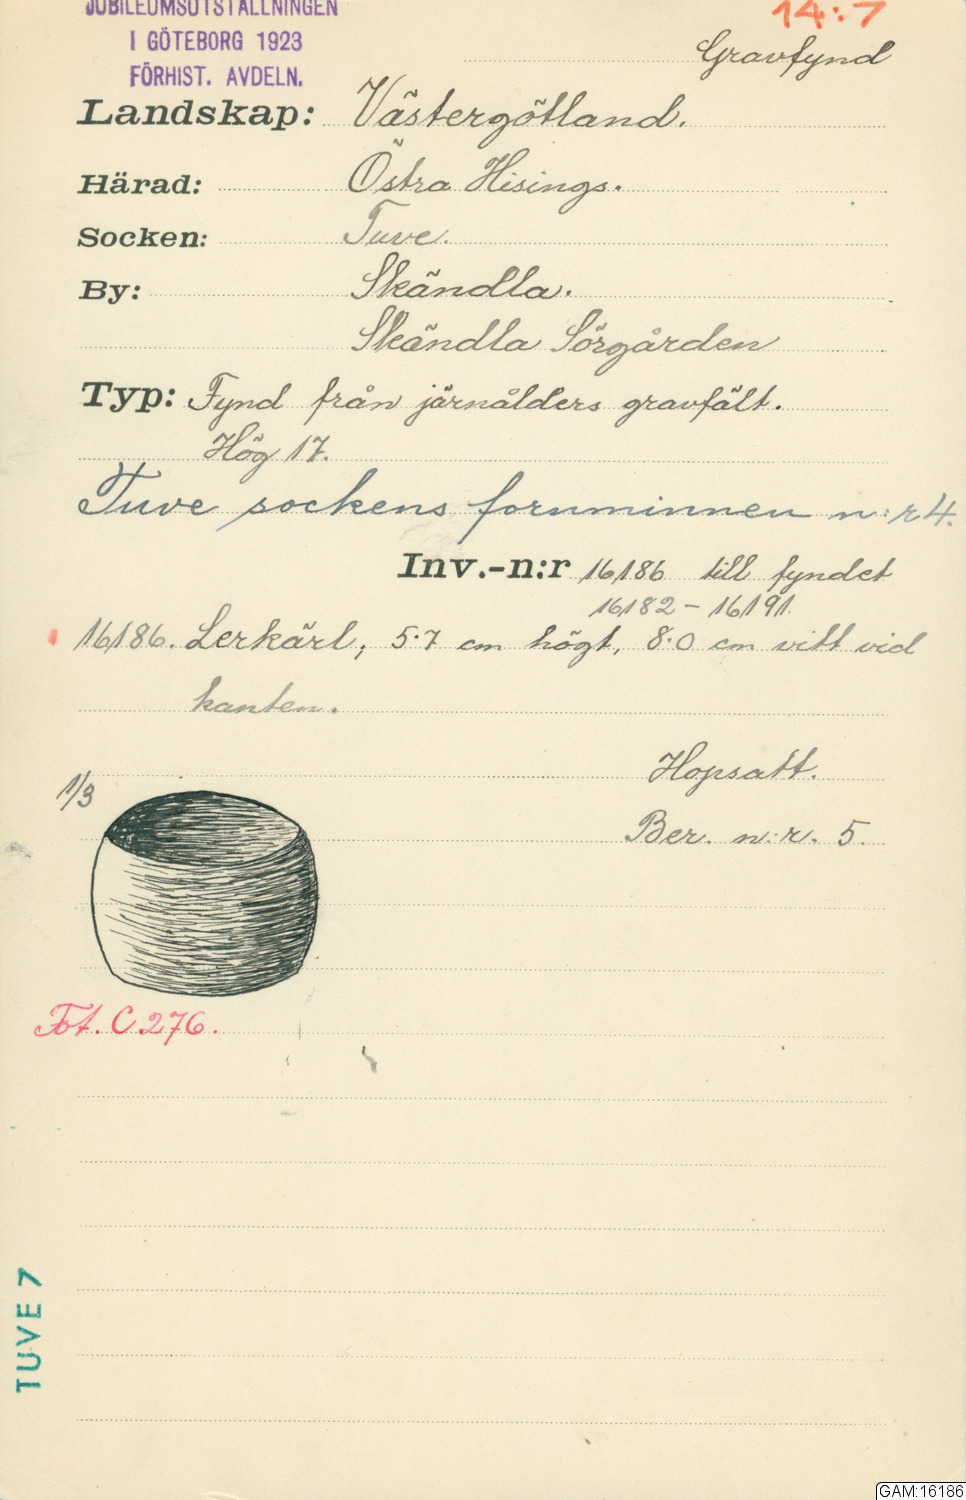 JUBILEUMSUTSTÄLLNINGEN
I GÖTEBORG 1923
FÖRHIST. AVDELN.
14:7
Gravfynd
Landskap: Västergötland.
Härad: Östra Hisings.
Socken: Tuve.
By: Skändla.
Skändla Sörgården
Typ: Fynd från järnålders gravfält.
Hög 17.
Tuve sockens fornminnen n:r 4.
Inv.-n:r 16186 till fyndet
16182 - 16191.
16186. Lerkärl; 5.7 cm högt, 8.0 cm vitt vid
kanten.
Hopsatt.
1/3
Ber. n:r. 5.
Fot. C.276.
TUVE 7
GAM:16186